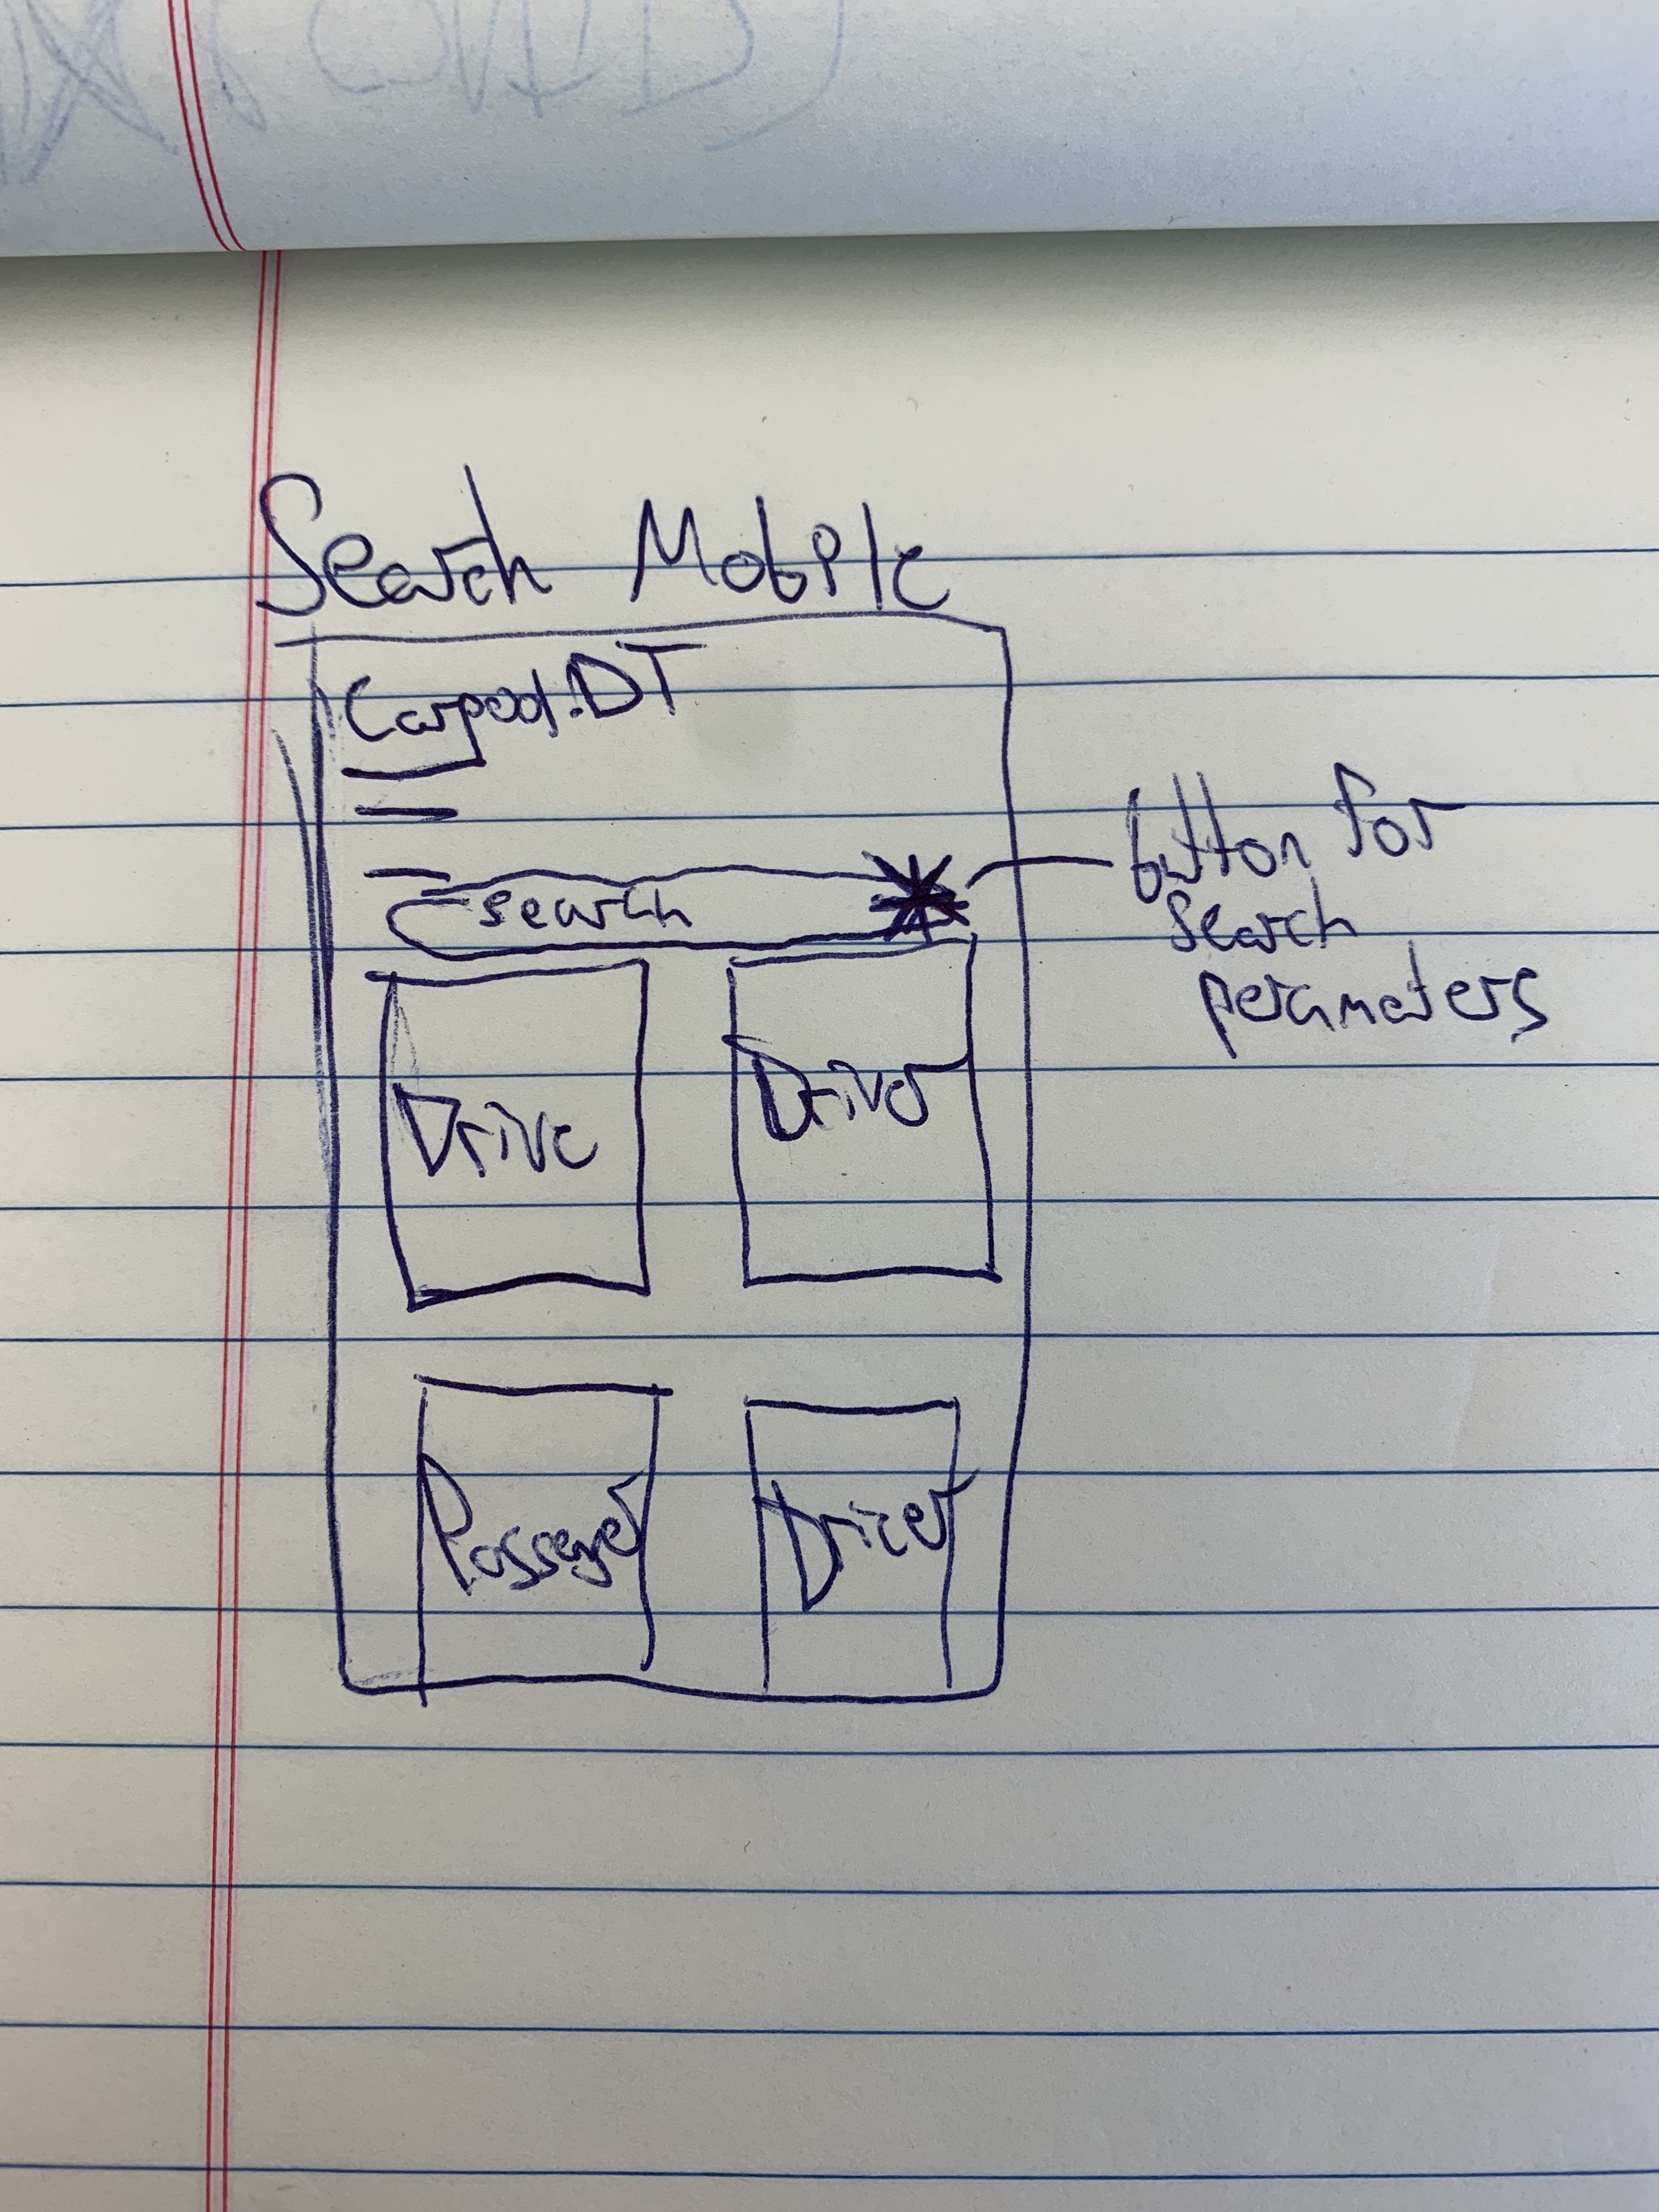 Search Mobile
Carpool.DT
search
button for
search
perameters
Drive
Driver
Passeger
Dricer